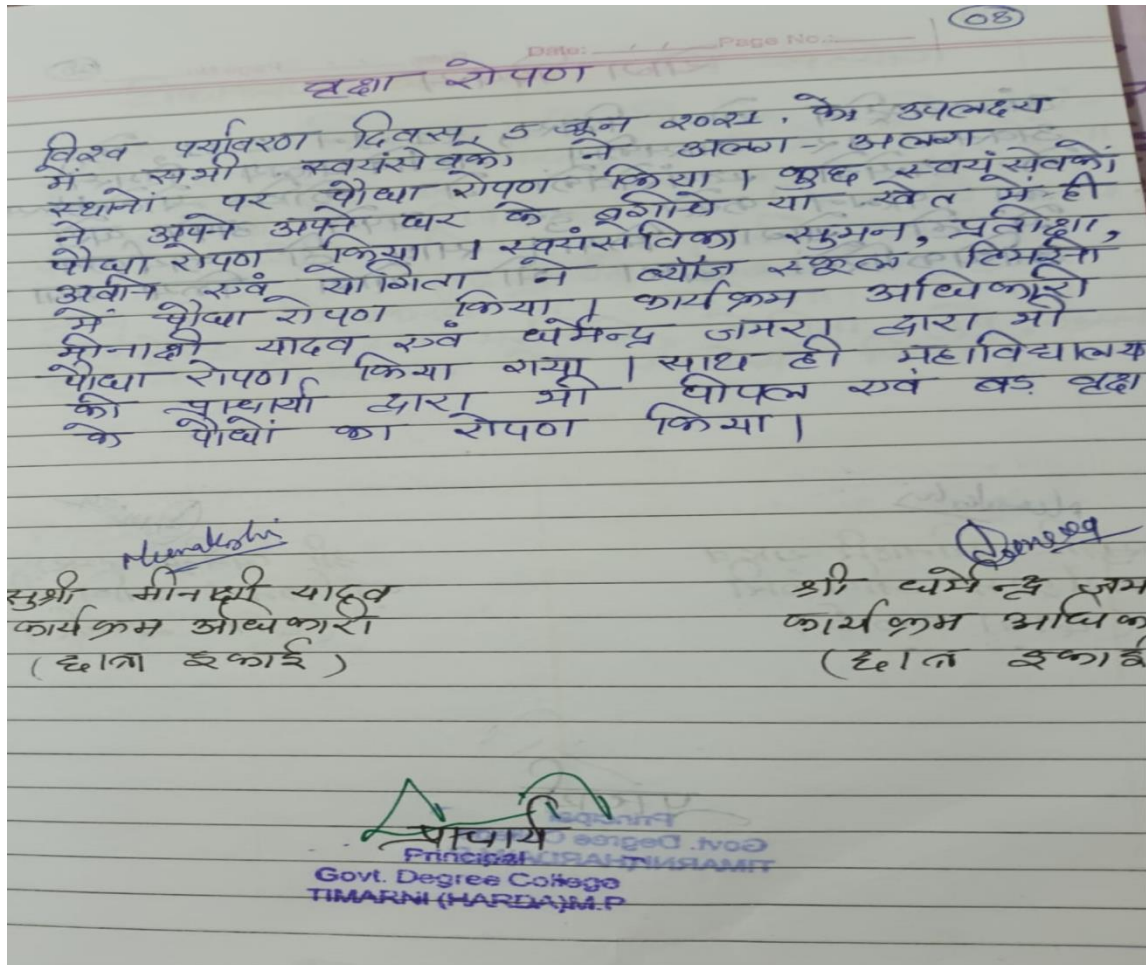 08
Date: / / Page No.:
वृक्षा रोपण
विश्व पर्यावरण दिवस, 5 जून २०२१. के उपलक्ष्य
में सभी स्वयंसेवको ने अलग - अलग
स्थानों पर पौधा रोपण किया। कुछ स्वयं सेवकों
ने अपने अपने घर के बगीचे या खेत में ही
पौधा रोपण किया। स्वयंसेविका सुमन, प्रतीक्षा,
एवं योगिता ने स्कूल टिमरनी
में पौधा रोपण किया। कार्यक्रम अधिकारी
मीनाक्षी यादव एवं धर्मेन्द्र जमरा द्वारा भी
पौधा रोपण किया गया। साथ ही महाविद्यालय
की प्राचार्या द्वारा भी पीपल एवं बड़ वृक्ष
के पौधों का रोपण किया।
Meenakshi
सुश्री मीनाक्षी यादव
श्री धर्मेन्द्र जम
कार्यक्रम अधिकारी
कार्यक्रम अधिक
(छात्रा इकाई)
(छात्र इकाई
प्राचार्य
Principal
Govt. Degree College
TIMARNI (HARDA) M.P